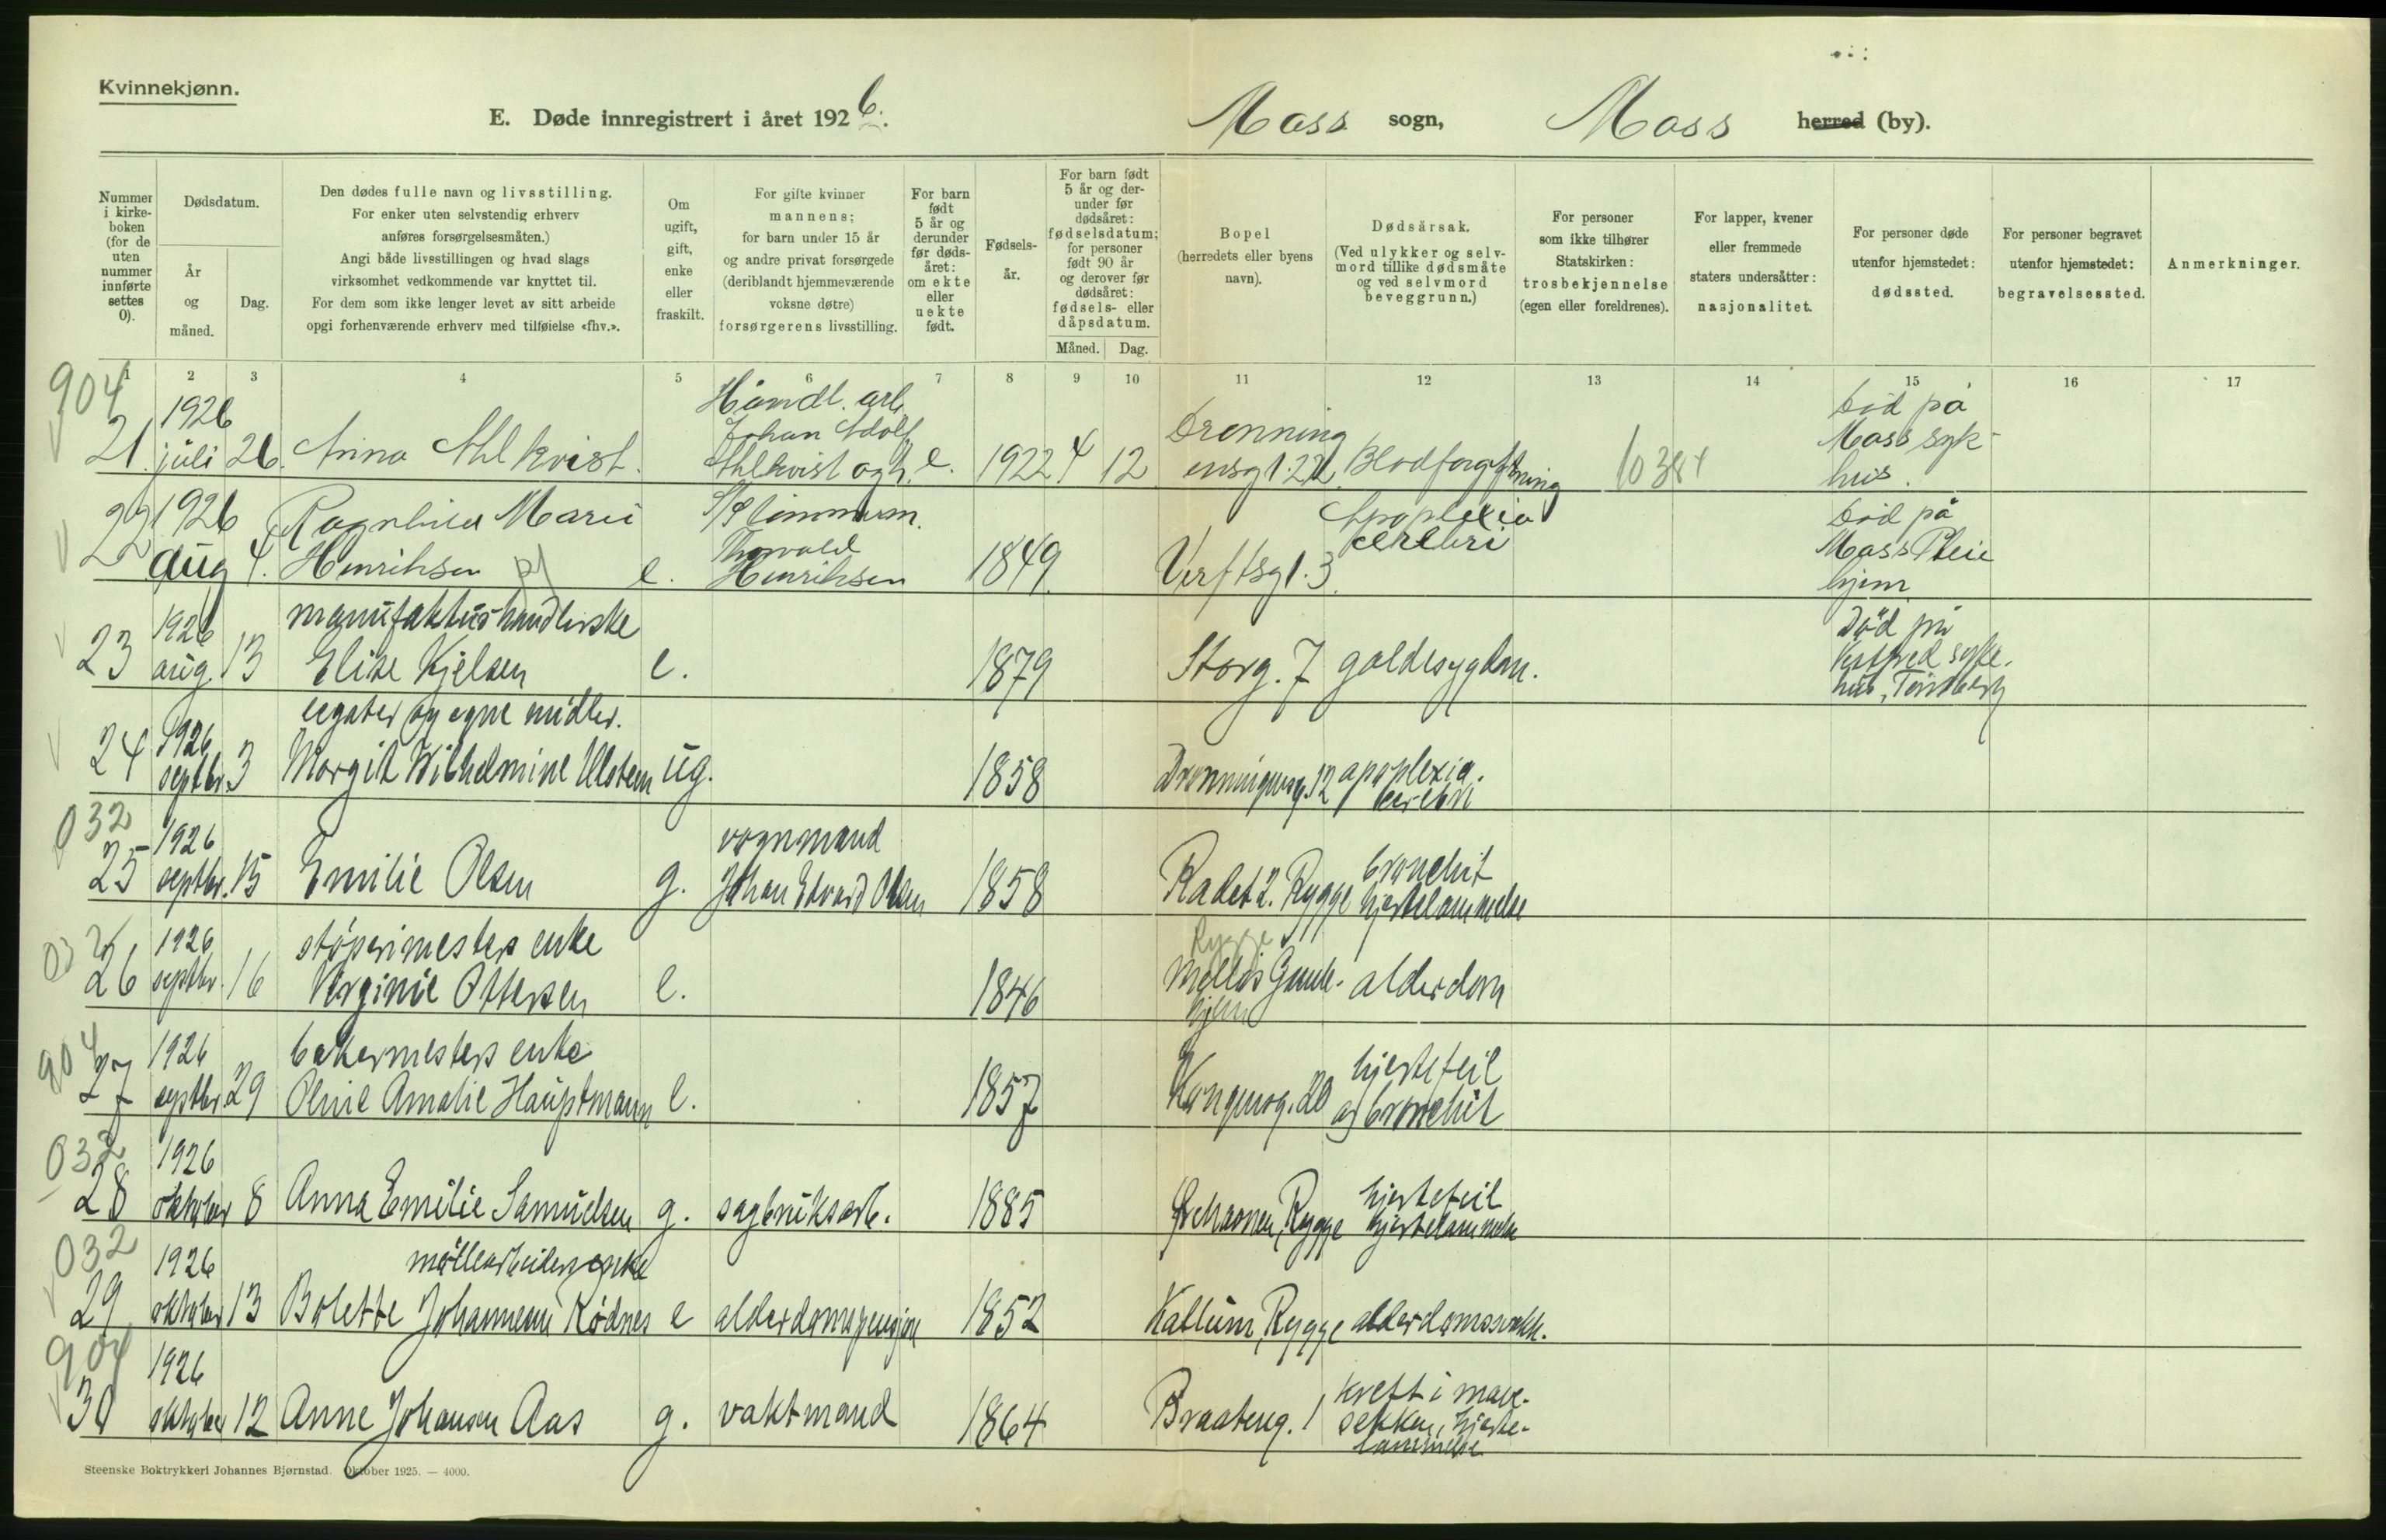 Kvinnekjønn.
E. Døde innregistrert i året 1926.
Moss sogn, Moss herred (by).
Nummer i kirkeboken (for de uten nummer innførte settes 0).
Dødsdatum.
År og måned.
Dag.
Den dødes fulle navn og livsstilling.
For enker uten selvstendig erhverv
anføres forsørgelsesmåten.)
Angi både livsstillingen og hvad slags
virksomhet vedkommende var knyttet til.
For dem som ikke lenger levet av sitt arbeide
opgi forhenværende erhverv med tilføielse «fhv.».
Om ugift, gift, enke eller fraskilt.
For gifte kvinner
mannens;
for barn under 15 år
og andre privat forsørgede
(deriblandt hjemmeværende
voksne døtre)
forsørgerens livsstilling.
For barn født 5 år og derunder før dødsåret: om ekte eller uekte født.
Fødselsår.
For barn født 5 år og derunder før dødsåret: fødselsdatum; for personer født 90 år og derover før dødsåret: fødsels- eller dåpsdatum.
Måned. Dag.
Bopel
(herredets eller byens
navn).
Dødsårsak.
(Ved ulykker og selv-
mord tillike dødsmåte
og ved selvmord
beveggrunn.)
For personer
som ikke tilhører
Statskirken:
trosbekjennelse
(egen eller foreldrenes).
For lapper, kvener
eller fremmede
staters undersåtter:
nasjonalitet.
For personer døde
utenfor hjemstedet:
dødssted.
For personer begravet
utenfor hjemstedet:
begravelsessted.
Anmerkninger.
1 2 3 4 5 6 7 8 9 10 11 12 13 14 15 16 17
904
21. 1926 juli 26. Anna Ahlkvist. Håndl. arb. Johan Adolf Ahlkvist e. 1922 4 12 Dronningensgt. 22 Blodforgiftning Død på Moss sykhus.
22 1926 aug 4. Ragnhild Marie Henriksen e. Thorvald Henriksen 1849. Verftsgt. 3. Apoplexia cerebri Død på Moss Pleiehjem
23 1926 aug. 13 manufakturhandlerske Elise Kjelsen e. 1879 Storg. 7 galdesygdom. Død på sykehus, Tønsberg
24 1926 septbr. 3 legater og egne midler. Margit Wilhelmine Ulstein ug. 1858 Dronningensg. 12 apoplexia cerebri
032
25 1926 septbr. 15 Emilie Olsen g. vognmand Johan Edvard Olsen 1858 Radet 2. Rygge bronchit hjertelammelse
032
26 1926 septbr. 16 støperimesters enke Virginie Ottersen e. 1846 Rygge Melløs Gamlehjem alderdom
904
27 1926 septbr 29 bakermesters enke Oline Amalie Hauptmann e. 1857 Kongensg. 20 hjertefeil og bronchit
032
28 1926 oktober 8 Anna Emilie Samuelsen g. sagbruksarb. 1885 Rygge hjertefeil hjertelammelse
032
29 1926 oktober 13 møllearbeiders enke Bolette Johannesen Rødnes e alderdomspensjon 1852 Kallum, Rygge alderdomssvakh.
904
30 1926 oktober 12 Anne Johansen Aas g. vaktmand 1864 Braateng. 1 kreft i mavesekken, hjertelammelse
Steenske Boktrykkeri Johannes Bjørnstad. Oktober 1925. — 4000.